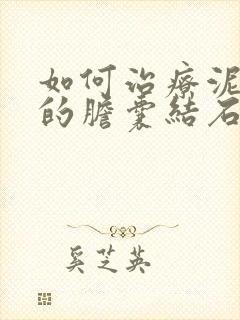 如何治療泥
的膽囊結石
奚芝英